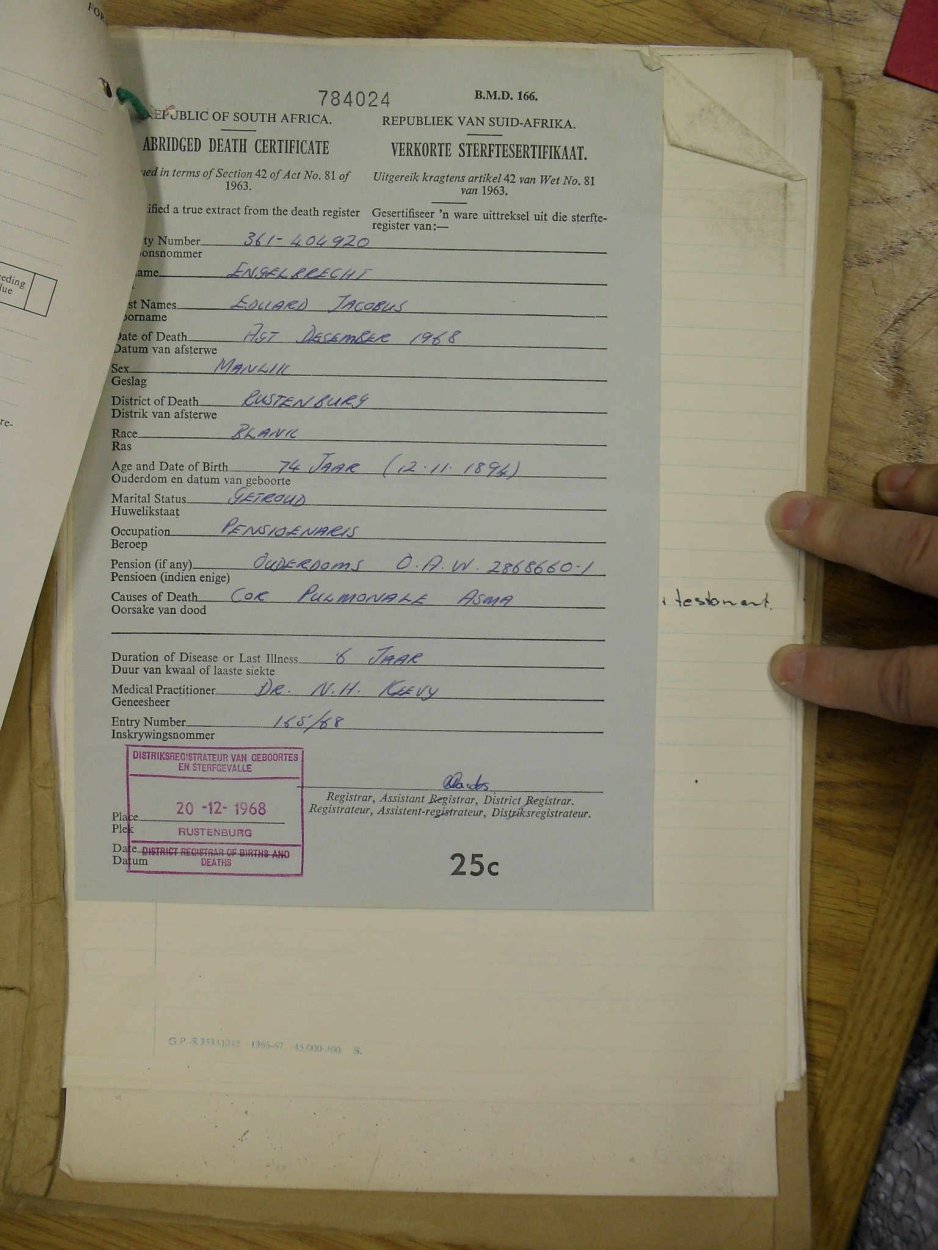 FOR
784024
B.M.D. 166.
REPUBLIC OF SOUTH AFRICA.
REPUBLIEK VAN SUID-AFRIKA.
ABRIDGED DEATH CERTIFICATE
VERKORTE STERFTESERTIFIKAAT.
ued in terms of Section 42 of Act No. 81 of
1963.
Uitgereik kragtens artikel 42 van Wet No. 81
van 1963.
ified a true extract from the death register
Gesertifiseer 'n ware uittreksel uit die sterfte-
register van:—
ty Number 361-404920
onsnommer
ame ENGELBRECHT
st Names EDUARD JACOBUS
oorname
Date of Death AGT DESEMBER 1968
Datum van afsterwe
Sex MANLIK
Geslag
District of Death RUSTENBURG
Distrik van afsterwe
Race BLANK
Ras
Age and Date of Birth 74 JAAR (12.11.1894)
Ouderdom en datum van geboorte
Marital Status GETROUD
Huwelikstaat
Occupation PENSIOENARIS
Beroep
Pension (if any) OUDERDOMS O.A.W. 2868660-1
Pensioen (indien enige)
Causes of Death COR PULMONALE ASMA
Oorsake van dood
Duration of Disease or Last Illness 6 JAAR
Duur van kwaal of laaste siekte
Medical Practitioner DR. N.H. KEEVY
Geneesheer
Entry Number 165/68
Inskrywingsnommer
DISTRIKSREGISTRATEUR VAN GEBOORTES
EN STERFGEVALLE
20 -12- 1968
RUSTENBURG
DISTRICT REGISTRAR OF BIRTHS AND
DEATHS
Place
Plek
Date
Datum
Registrar, Assistant Registrar, District Registrar.
Registrateur, Assistent-registrateur, Distriksregistrateur.
25c
testament.
eeding
lue
re-